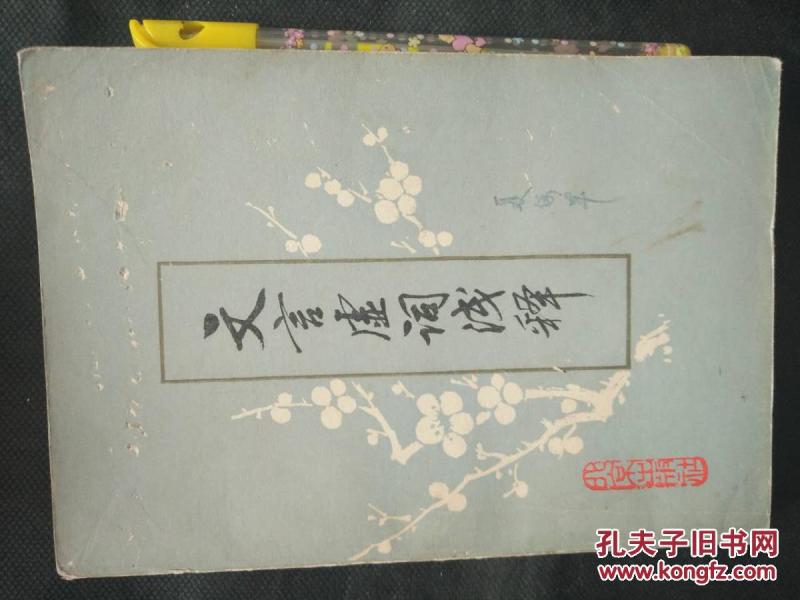 文言虚词浅释
北京出版社
孔夫子旧书网
www.kongfz.com